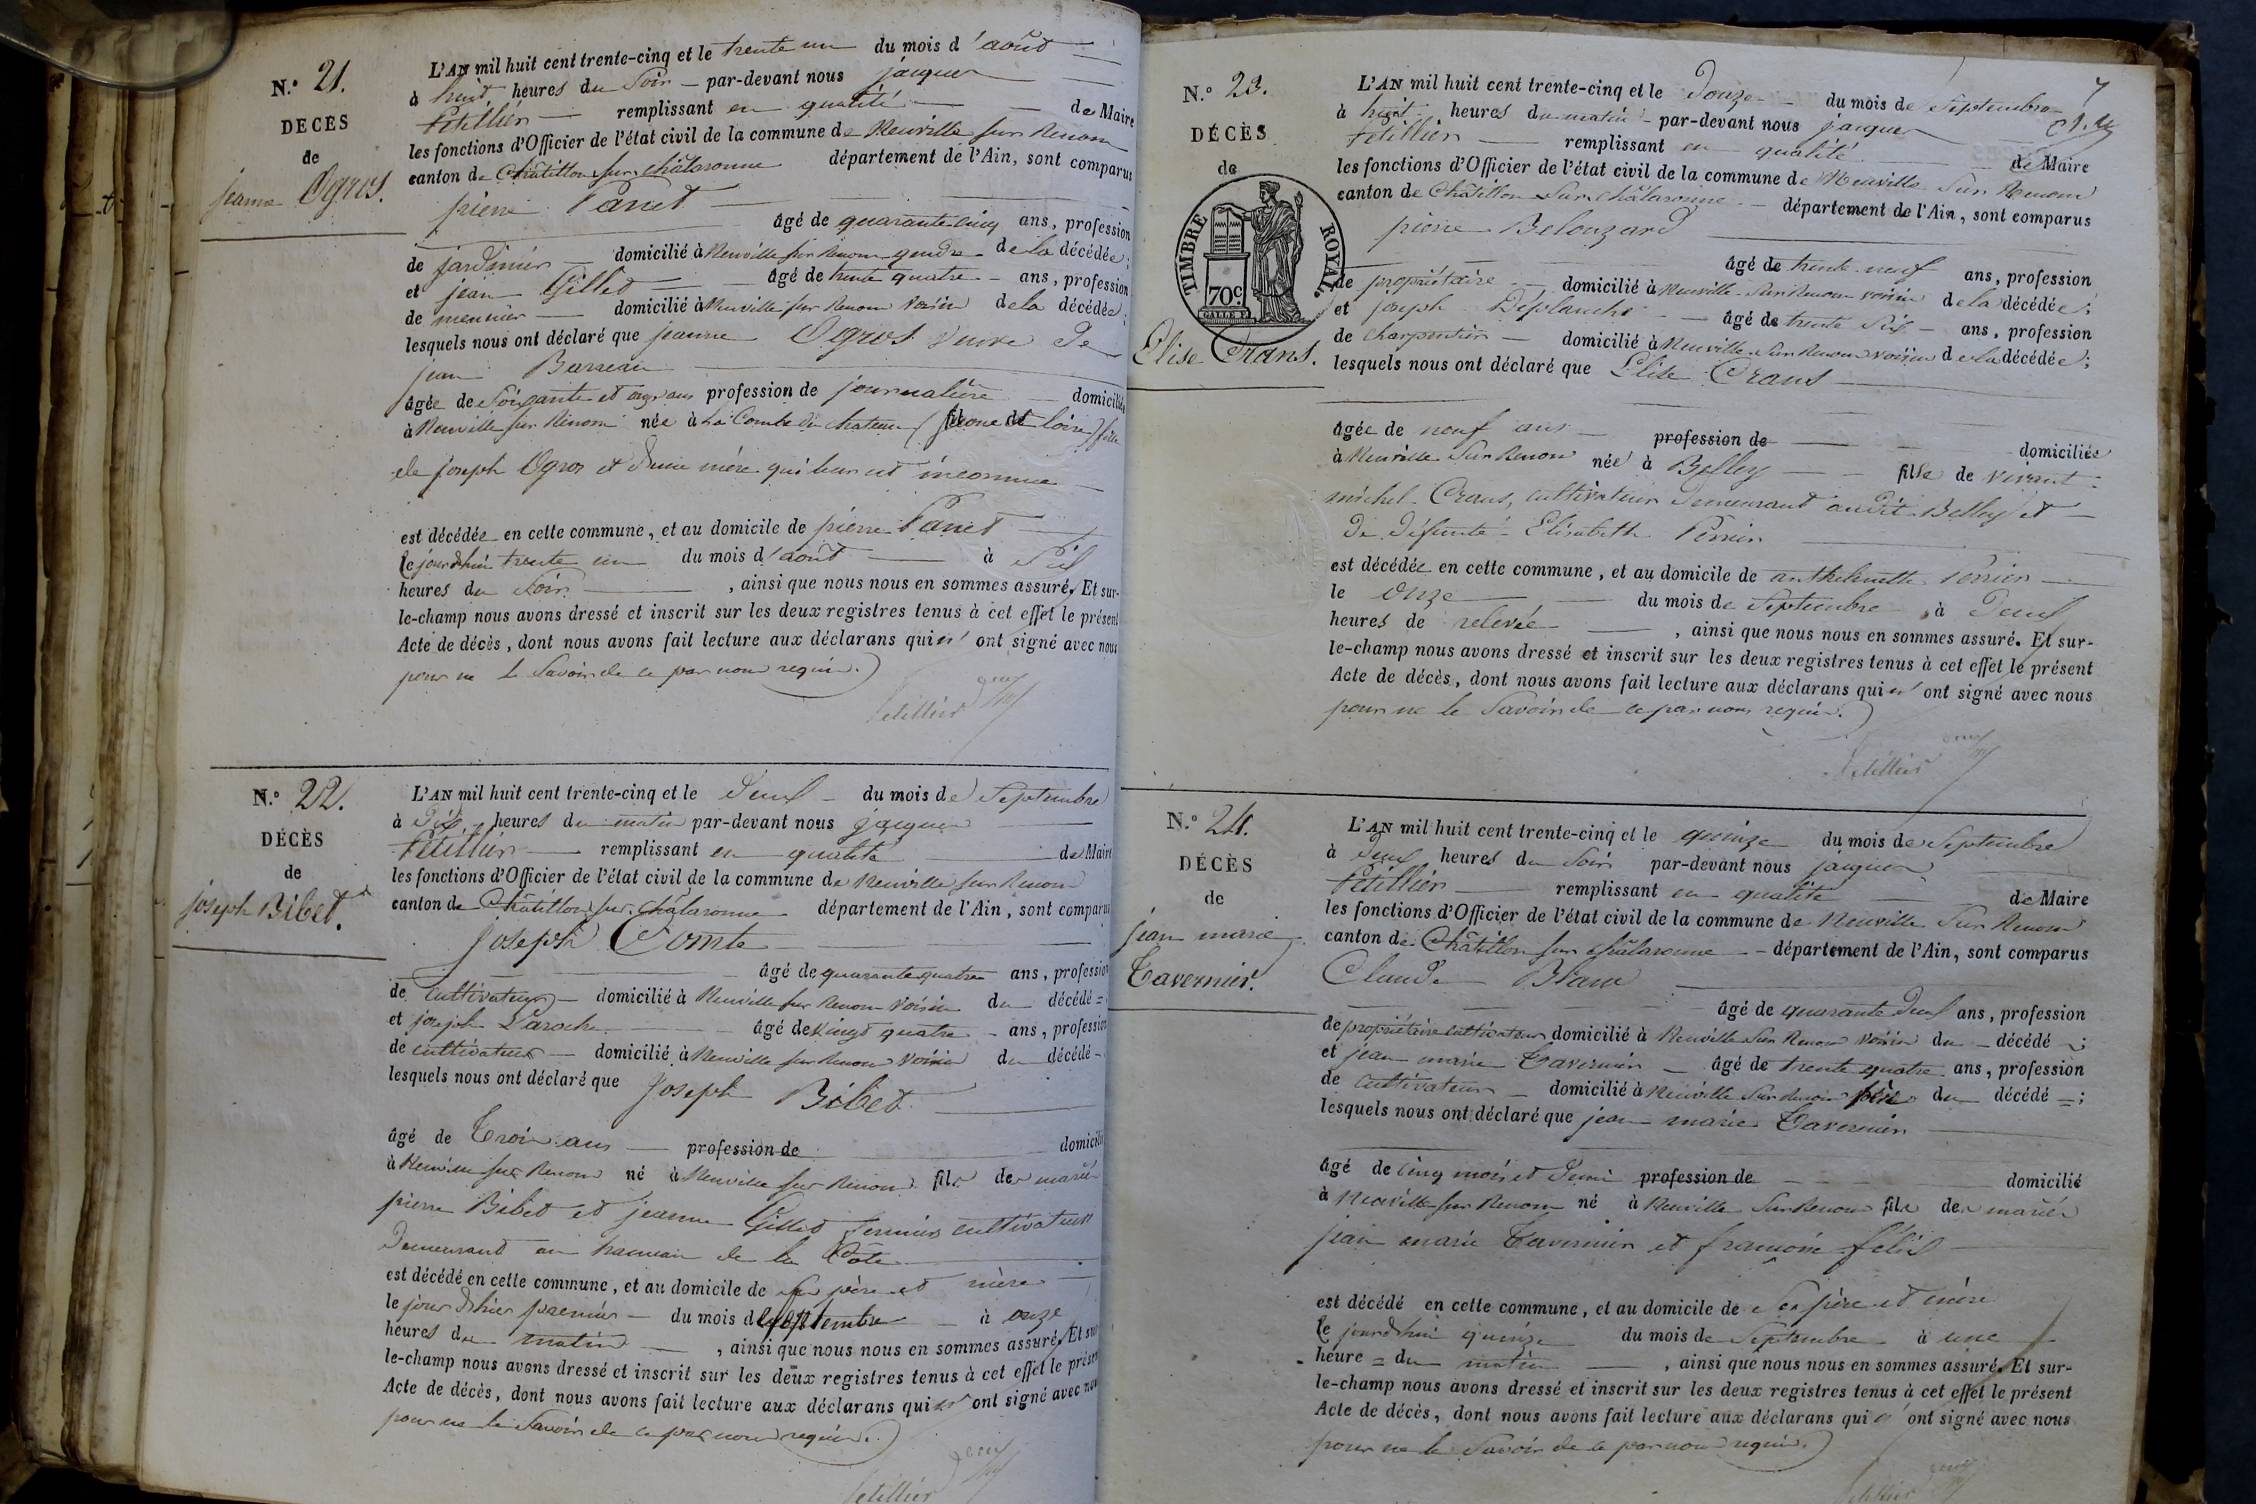 N.° 21.
DECES
de
jeanne Ogros.
L'AN mil huit cent trente-cinq et le trente un du mois d'août
à huit heures du Soir par-devant nous jacques
Petillier remplissant en qualité de Maire
les fonctions d'Officier de l'état civil de la commune de Neuville sur Renom
canton de Châtillon sur Châlaronne département de l'Ain, sont comparus
pierre Panet
âgé de quarante cinq ans, profession
de jardinier domicilié à Neuville sur Renom gendre de la décédée;
et jean Gillet âgé de trente quatre ans, profession
de meunier domicilié à Neuville sur Renom voisin de la décédée;
lesquels nous ont déclaré que jeanne Ogros veuve de
jean
âgée de Soixante et ans profession de journalière domiciliée
à Neuville sur Renom née à La Combe du chateau (Saone et loire) fille
de joseph Ogros et d'une mère qui leur est inconnue
est décédée en cette commune, et au domicile de pierre Panet
le jourdhui trente un du mois d'août à Six
heures du Soir, ainsi que nous nous en sommes assuré. Et sur-
le-champ nous avons dressé et inscrit sur les deux registres tenus à cet effet le présent
Acte de décès, dont nous avons fait lecture aux déclarans qui n'ont signé avec nous
pour ne le Savoir de ce par nous requis.
Petillier
N.° 22.
DÉCÈS
de
joseph Bibet.
L'AN mil huit cent trente-cinq et le Deux du mois de Septembre
à Dix heures du matin par-devant nous jacques
Petillier remplissant en qualité de Maire
les fonctions d'Officier de l'état civil de la commune de Neuville sur Renom
canton de Châtillon sur Châlaronne département de l'Ain, sont comparus
Joseph Comte
âgé de quarante quatre ans, profession
de Cultivateur domicilié à Neuville sur Renom voisin du décédé =
et joseph Laroche âgé de vingt quatre ans, profession
de cultivateur domicilié à Neuville sur Renom voisin du décédé
lesquels nous ont déclaré que Joseph Bibet
âgé de Trois ans profession de domicilié
à Neuville sur Renom né à Neuville sur Renom fils de mariés
pierre Bibet et jeanne Gillet fermiers cultivateurs
Demeurant au hameau de la Côte
est décédé en cette commune, et au domicile de Ses père et mère
le jour d'hier premier du mois de Septembre à onze
heures du matin, ainsi que nous nous en sommes assuré. Et sur
le-champ nous avons dressé et inscrit sur les deux registres tenus à cet effet le présent
Acte de décès, dont nous avons fait lecture aux déclarans qui n'ont signé avec nous
pour ne le Savoir de ce par nous requis.
Petillier
N.° 23.
DÉCÈS
de
TIMBRE ROYAL.
70c
Elise Crans.
7
L'AN mil huit cent trente-cinq et le Douze du mois de Septembre
à huit heures du matin par-devant nous jacques
Petillier remplissant en qualité de Maire
les fonctions d'Officier de l'état civil de la commune de Neuville Sur Renom
canton de Châtillon Sur Châlaronne département de l'Ain, sont comparus
pierre Belouzard
âgé de trente neuf ans, profession
de propriétaire domicilié à Neuville Sur Renom voisin de la décédée;
et joseph Déplanche âgé de trente Six ans, profession
de Charpentier domicilié à Neuville Sur Renom voisin de la décédée;
lesquels nous ont déclaré que Elise Crans
âgée de neuf ans profession de domiciliée
à Neuville Sur Renom née à Belley fille de vivant
michel Crans, cultivateur Demeurant audit Belley et
De Défunte Elisabeth Perrier
est décédée en cette commune, et au domicile de anthelmette Perrier
le Onze du mois de Septembre à Deux
heures de relevée, ainsi que nous nous en sommes assuré. Et sur-
le-champ nous avons dressé et inscrit sur les deux registres tenus à cet effet le présent
Acte de décès, dont nous avons fait lecture aux déclarans qui n'ont signé avec nous
pour ne le Savoir de ce par nous requis.
Petillier
N.° 24.
DÉCÈS
de
jean marie
Tavernier.
L'AN mil huit cent trente-cinq et le quinze du mois de Septembre
à Deux heures du Soir par-devant nous jacques
Petillier remplissant en qualité de Maire
les fonctions d'Officier de l'état civil de la commune de Neuville Sur Renom
canton de Châtillon sur Châlaronne département de l'Ain, sont comparus
Claude Blanc
âgé de quarante Deux ans, profession
de propriétaire cultivateur domicilié à Neuville Sur Renom voisin du décédé;
et jean marie Tavernier âgé de trente quatre ans, profession
de Cultivateur domicilié à Neuville Sur Renom père du décédé =;
lesquels nous ont déclaré que jean marie Tavernier
âgé de Cinq mois et Demi profession de domicilié
à Neuville sur Renom né à Neuville Sur Renom fils de mariés
jean marie Tavernier et francoise félix
est décédé en cette commune, et au domicile de Ses père et mère
le jourdhui quinze du mois de Septembre à une
heure = du matin, ainsi que nous nous en sommes assuré. Et sur-
le-champ nous avons dressé et inscrit sur les deux registres tenus à cet effet le présent
Acte de décès, dont nous avons fait lecture aux déclarans qui n'ont signé avec nous
pour ne le Savoir de ce par nous requis.
Petillier